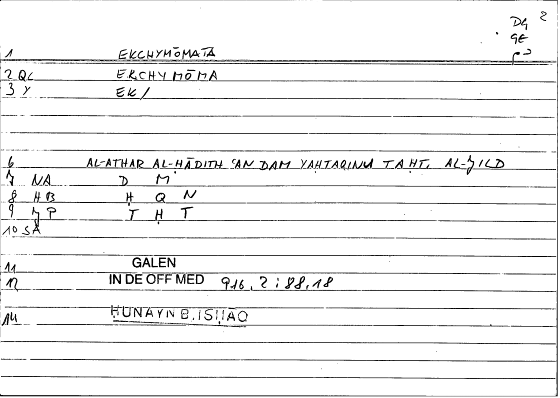 DG 2
GE
1 EKCHYMŌMATA
2 QL EKCHYMŌMA
3 Y EK/
6 AL-ATHAR AL-ḤĀDITH ʿAN DAM YAḤTAQINU TAḤT AL-JILD
7 NA D M
8 HB Ḥ Q N
9 JP T Ḥ T
10 SA
11 GALEN
12 IN DE OFF MED 916, 2 : 88,18
14 ḤUNAYN B. ISḤĀQ